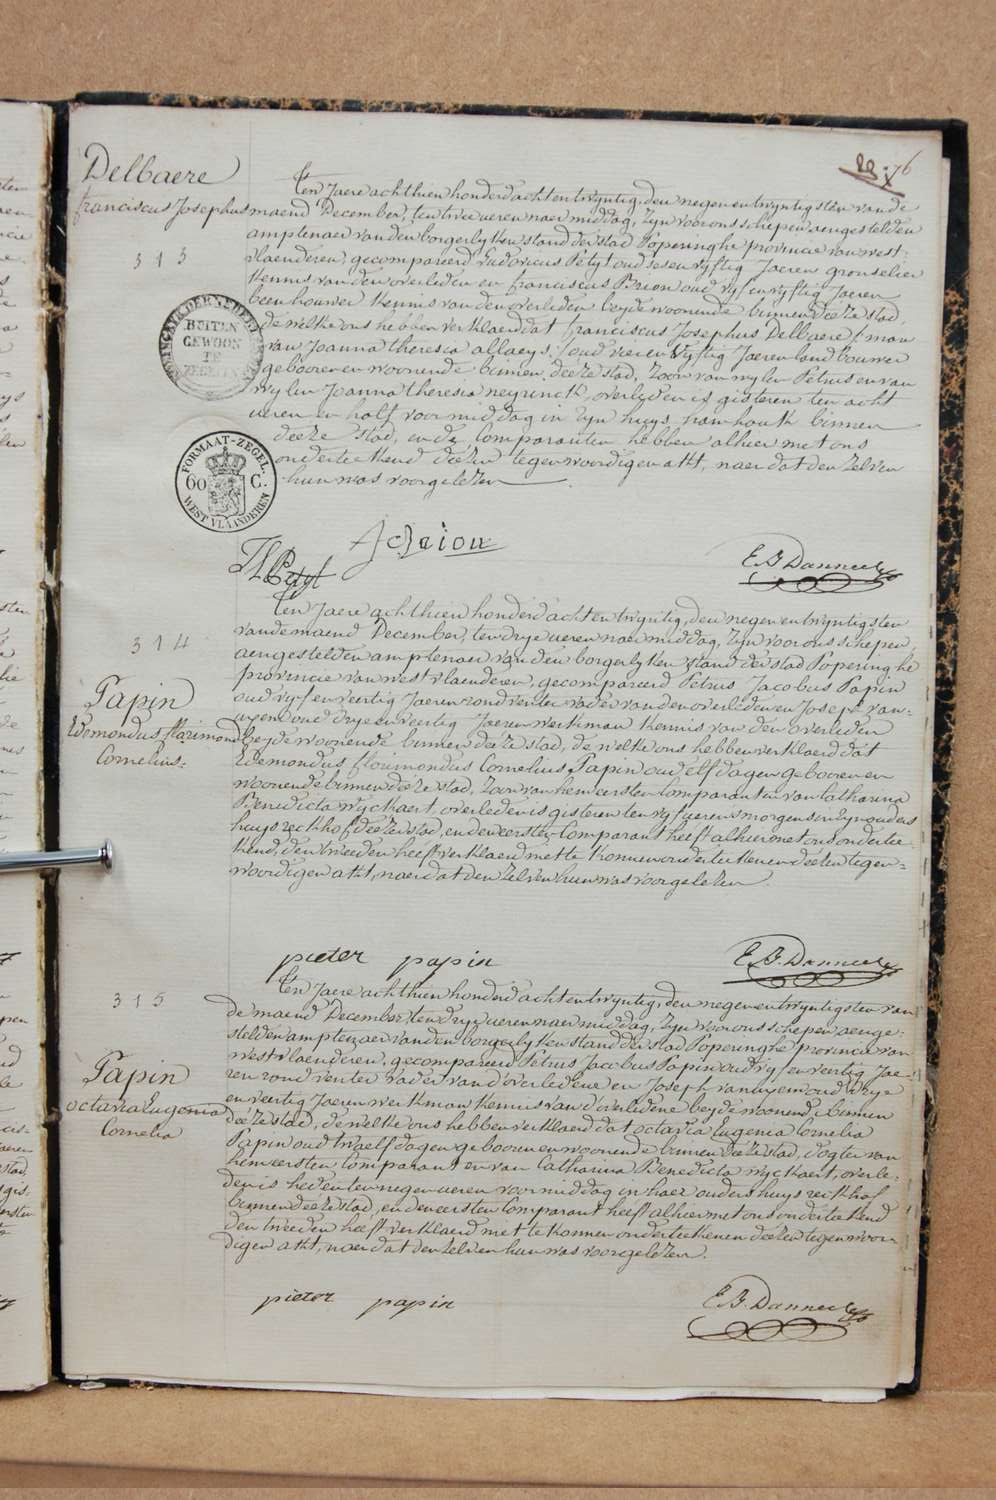 76
Delbaere
franciscus Josephus
313
Ten Jaere achthien honderd acht en twyntig, den negen en twyntigsten van de
maend December, ten twee ueren naer middag, zyn voor ons schepen aengestelden
amptenaer van den borgerlyken stand der stad Poperinghe provincie van west-
vlaenderen, gecompareerd Ludovicus Petyt oud sesenvyftig Jaeren
kennis van den overleden en franciscus Brion oud vyf en vyftig Jaeren
beenhouwer kennis van den overleden beyde woonende binnen deeze stad,
de welke ons hebben verklaerd dat franciscus Josephus Delbaere, man
van Joanna theresia allaeys, oud vier en vyftig Jaeren landbouwer
gebooren en woonende binnen deeze stad, zoon van wylen Petrus en van
wylen Joanna theresia neyrinck, overleden is gisteren ten acht
ueren en half voormiddag in zyn huys hamhouk binnen
deeze stad, en de Comparanten hebben alhier met ons
onderteekend deezen tegenwoordigen akt, naer dat den zelven
hun was voorgelezen
BUITEN
GEWOON
TE
ZEGELEN
FORMAAT-ZEGEL.
60 C.
WEST VLAANDEREN
Petyt
E. B. Danneel
314
Papin
Edemondus florimondus
Cornelius
Ten Jaere achthien honderd acht en twyntig, den negen en twyntigsten
van de maend December, ten drye ueren naer middag, zyn voor ons schepen,
aengestelden amptenaer van den borgerlyken stand der stad Poperinghe
provincie van west vlaenderen, gecompareerd Petrus Jacobus Papin
oud vyf en veertig Jaeren rondventer vader van den overleden en Joseph van-
uxem oud drye en veertig Jaeren werkman kennis van den overleden
beyde woonende binnen deeze stad, de welke ons hebben verklaerd dat
Edemondus floumondus Cornelius Papin oud elf dagen gebooren en
woonende binnen deeze stad, zoon van hem eersten Comparant en van Catharina
Benedicta wyckaert, overleden is gisteren ten vyf ueren smorgens in zyn ouders
huys reckhof deeze stad, en den eersten Comparant heeft alhier met ons onder tee-
kend, den tweeden heeft verklaerd met te konnen onderteekenen deezen tegen-
woordigen akt, naer dat den zelven hun was voorgelezen.
pieter papin
E. B. Danneel
315
Papin
octavia Eugenia
Cornelia
Ten Jaere achthien honderd acht en twyntig, den negen en twyntigsten van
de maend December ten drye ueren naer middag, zyn voor ons schepen aenge-
stelden amptenaer van den borgerlyken stand der stad Poperinghe provincie van
west vlaenderen, gecompareerd Petrus Jacobus Papin oud vyf en veertig Jae-
ren rondventer vader van d'overledene en Joseph vanuxem oud drye
en veertig Jaeren werkman kennis van d'overledene beyde woonende binnen
deeze stad, de welke ons hebben verklaerd dat octavia Eugenia Cornelia
Papin oud twaelf dagen gebooren en woonende binnen deeze stad, dogter van
hem eersten Comparant en van Catharina Benedicta wyckaert, overle-
den is heden ten negen ueren voormiddag in haer ouders huys reckhof
binnen deeze stad, en den eersten Comparant heeft alhier met ons onderteekend
den tweeden heeft verklaerd met te konnen onderteekenen deezen tegenwoor-
digen akt, naer dat den zelven hun was voorgelezen.
pieter papin
E. B. Danneel